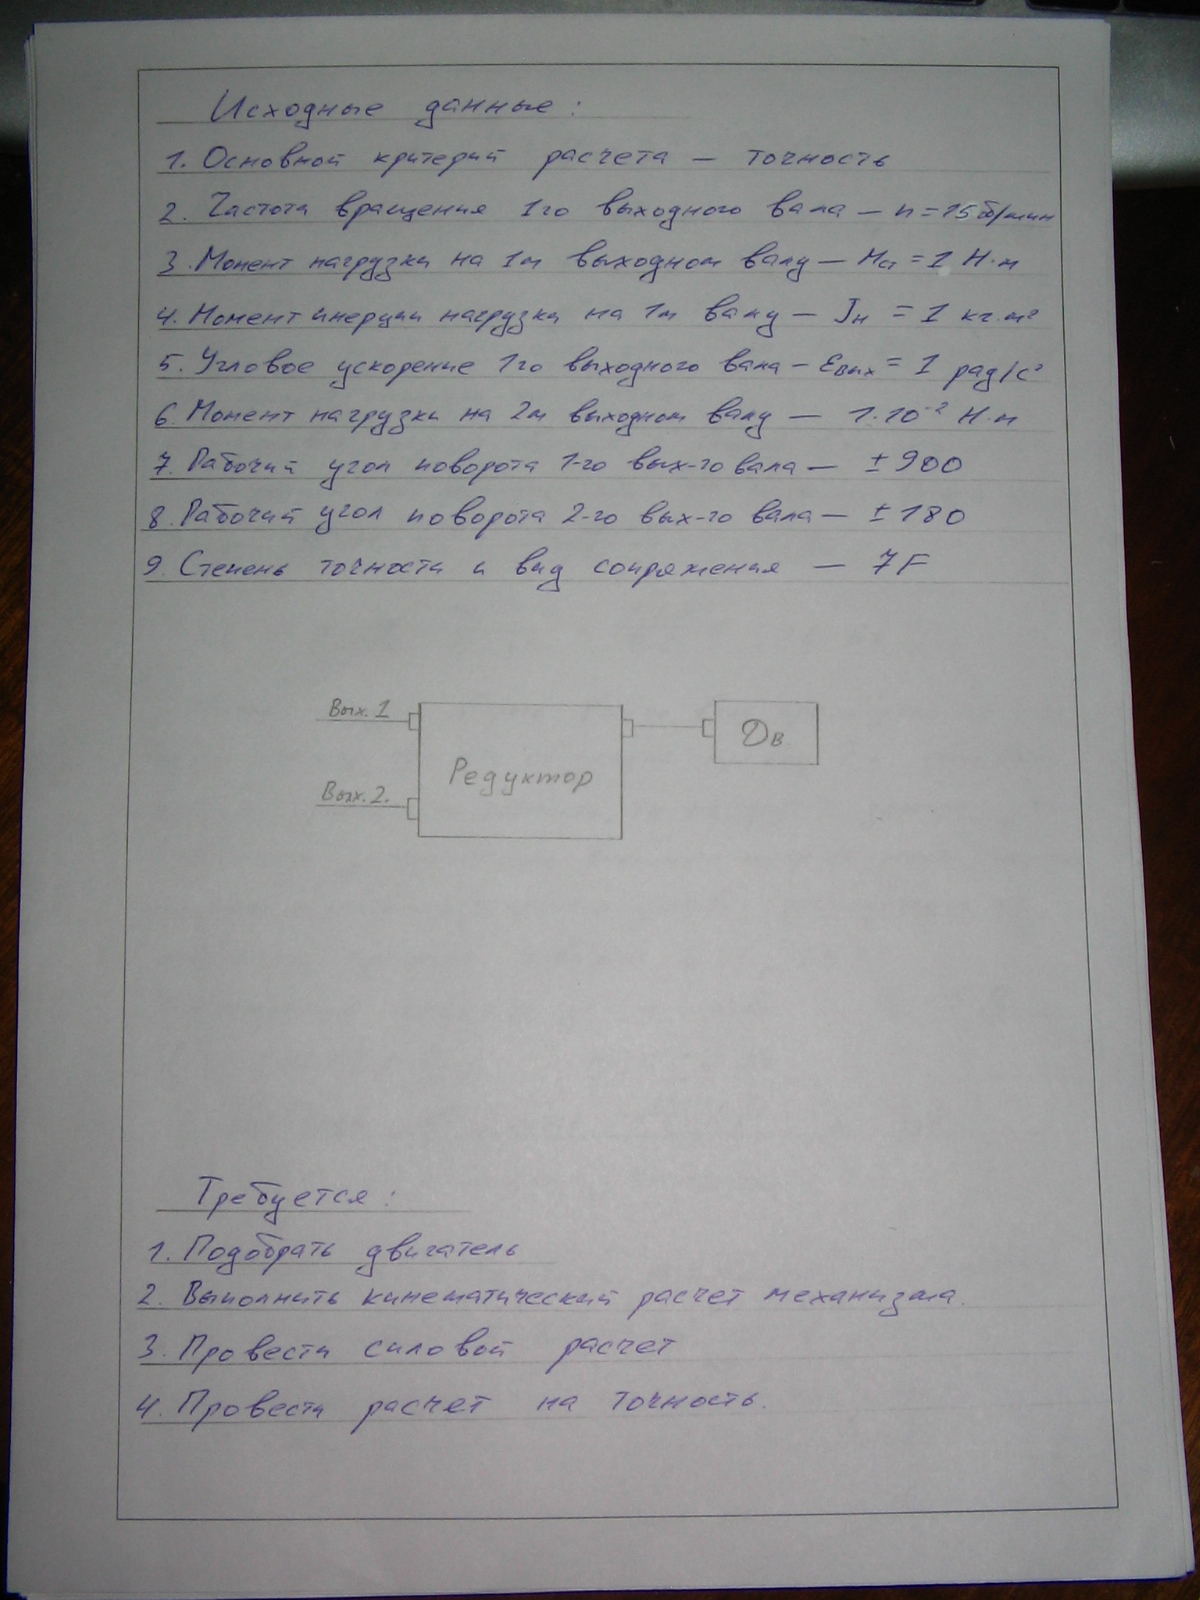 Исходные данные:
1. Основной критерий расчета — точность
2. Частота вращения 1го выходного вала — n = 15 об/мин
3. Момент нагрузки на 1м выходном валу — Mст = 1 Н·м
4. Момент инерции нагрузки на 1м валу — Jн = 1 кг·м²
5. Угловое ускорение 1го выходного вала — εвых = 1 рад/с²
6. Момент нагрузки на 2м выходном валу — 1·10⁻² Н·м
7. Рабочий угол поворота 1-го вых-го вала — ±900
8. Рабочий угол поворота 2-го вых-го вала — ±180
9. Степень точности и вид сопряжения — 7F
Вых. 1
Дв
Редуктор
Вых. 2.
Требуется:
1. Подобрать двигатель
2. Выполнить кинематический расчет механизма.
3. Провести силовой расчет
4. Провести расчет на точность.